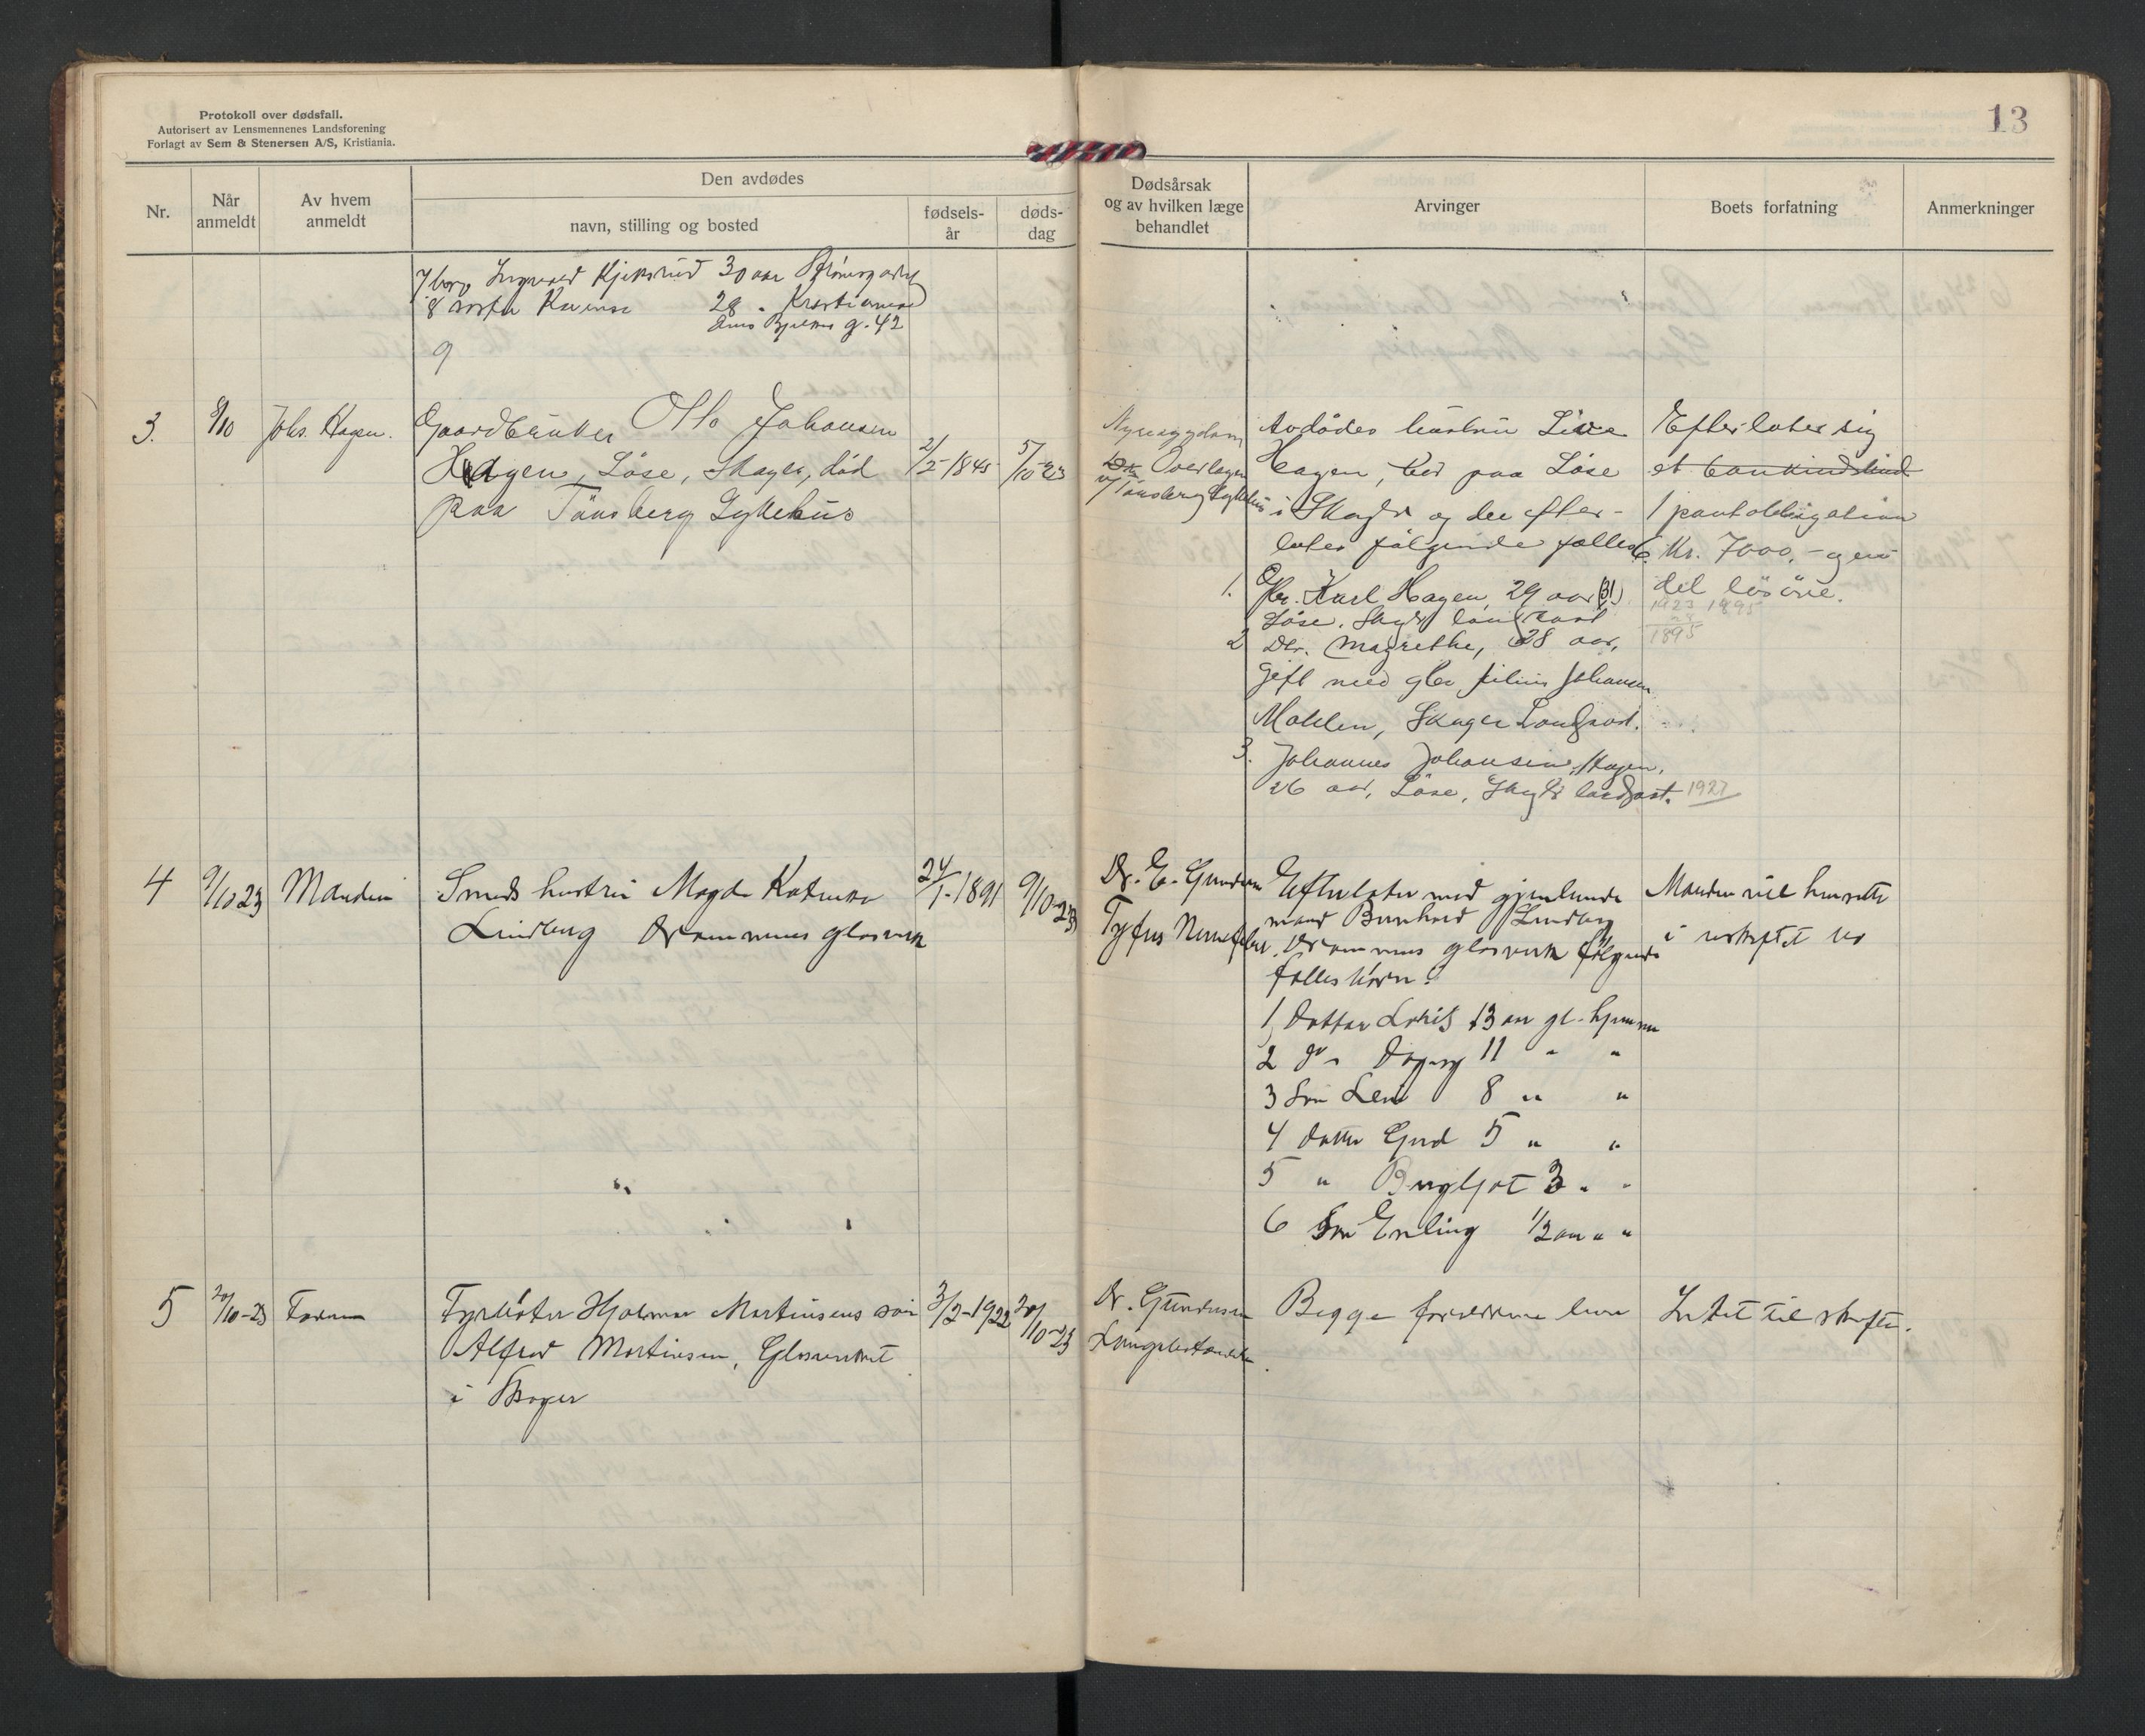 Protokoll over dødsfall.
Autorisert av Lensmennenes Landsforening
Forlagt av Sem & Stenersen A/S, Kristiania.
13
Nr.
Når anmeldt
Av hvem anmeldt
Den avdødes
navn, stilling og bosted
fødsels-år
døds-dag
Dødsårsak og av hvilken læge behandlet
Arvinger
Boets forfatning
Anmerkninger
7 Ingvald Kjeksrud 30 aar
8 28 " Kristiania
g. 42
9
3.
8/10
Johs. Hagen.
Gaardbruker Otto Johansen
Hagen, Löse, Skoger, död
paa Tönsberg Sykehus
2/5-1845
5/10-23
Nyresygdom
Overlægen
v/ Tönsberg Sykehus
Avdödes hustru Live
Hagen, bor paa Löse
i Skoger og der efter-
later följende fælles
1. Gbr. Karl Hagen, 29 aar (31)
Löse, Skoger landpost
2 Dtr. Magrethe, 28 aar,
gift med gbr Julius Johansen
Skoger Landpost.
3. Johannes Johansen Hagen,
26 aar, Löse, Skoger landpost.
1927
Efterlater sig
et
1 pantobligation
Kr. 7000,- og en
del lösöre.
1923 1895
1895
4
9/10 23
Manden
Smeds hustru Magda Katrine
Lindberg Drammens glasverk
24/1-1891
9/10-23
Dr. E. Gundersen
Tyfus Nervefeber
Efterlater med gjenlevende
mand Bernhard Lindberg
Drammens glasverk følgende
fælles børn:
1, Datter 13 aar gl. hjemme
2 Do Dagny 11 " "
3 Søn Leif 8 " "
4 datter Gerd 5 " "
5 " Bergljot 3 " "
6 Søn Erling 1/2 aar " "
Manden vil hensitte
i uskiftet bo
5
20/10-23
Faderen
Fyrbøter Hjalmar Martinsens søn
Alfred Martinsen, Glassverket
i Skoger
3/2-1922
20/10-23
Dr. Gundersen
Lungebetændelse
Begge forældrene lever
Intet til skifte.